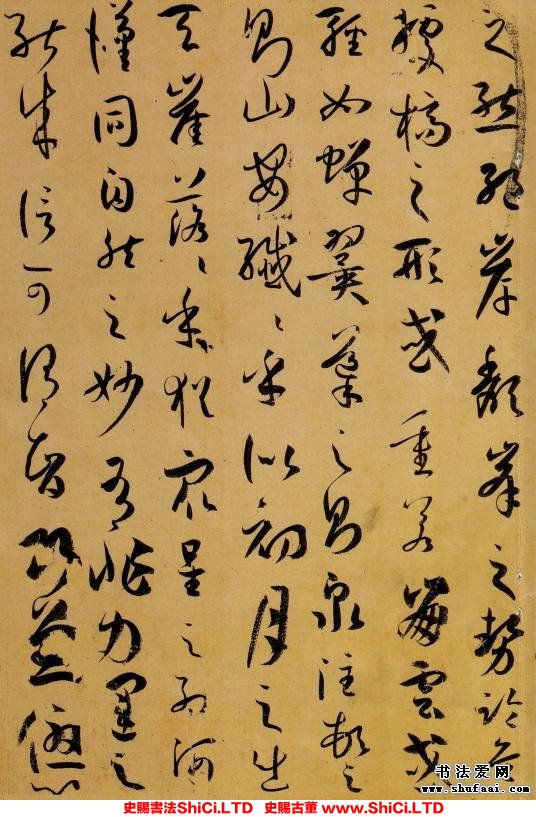 之态绝岸颓峯之势临危
據槁之形或重若崩雲或
輕如蟬翼導之則泉注頓之
則山安纖纖乎似初月之出
天崖落落乎猶衆星之列河
漢同自然之妙有非力運之
能成信可謂智巧兼優心
书法爱网
www.shufaai.com
史賜書法ShiCi.LTD 史賜古董 www.ShiCi.LTD